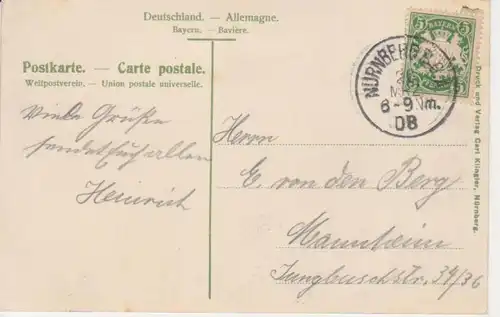 Deutschland. — Allemagne.
Bayern. — Bavière.
Postkarte. — Carte postale.
Weltpostverein. — Union postale universelle.
Viele Grüße
sendet Euch allen
Heinrich
5 BAYERN 5
NÜRNBERG
6-9 Nm.
08
Herrn
E. von den Berg
Mannheim
Jungbuschstr. 34/36
Druck und Verlag Carl Klingler, Nürnberg.